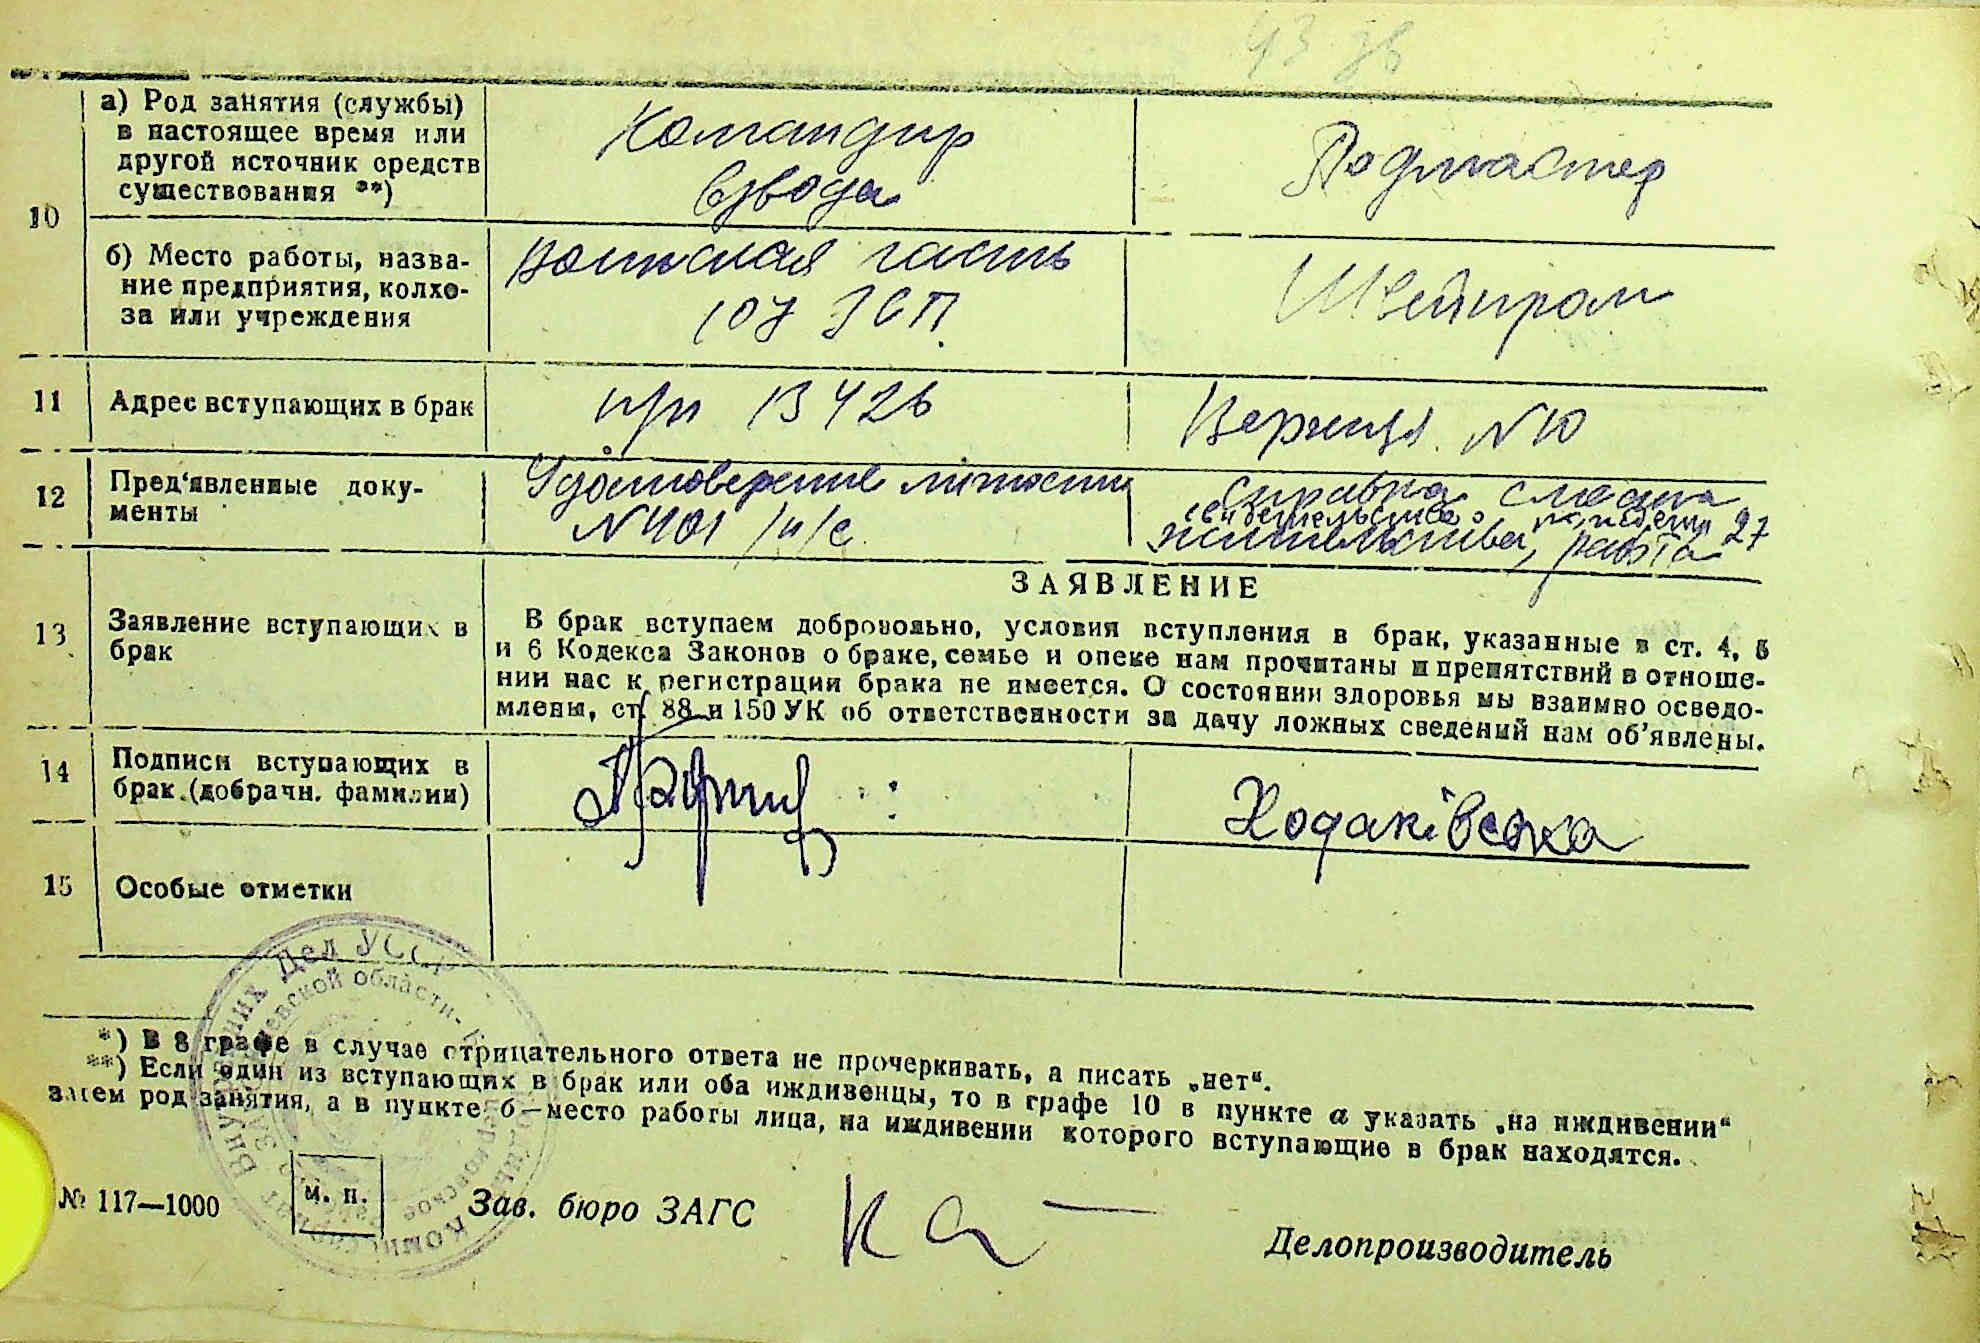 10
а) Род занятия (службы)
в настоящее время или
другой источник средств
существования **)
Командир
взвода
Подмастер
б) Место работы, назва-
ние предприятия, колхо-
за или учреждения
Воинская часть
107 ЗСП
Швейпром
11
Адрес вступающих в брак
п/п 13426
N 10
12
Пред'явленные доку-
менты
Удостоверение личности
N 401
Справка с места
жительства, работа
27
13
Заявление вступающих в
брак
ЗАЯВЛЕНИЕ
В брак вступаем добровольно, условия вступления в брак, указанные в ст. 4, 5
и 6 Кодекса Законов о браке, семье и опеке нам прочитаны и препятствий в отноше-
нии нас к регистрации брака не имеется. О состоянии здоровья мы взаимно осведо-
млены, ст. 88 и 150 УК об ответственности за дачу ложных сведений нам об'явлены.
14
Подписи вступающих в
брак (добрачн. фамилии)
Ходаківська
15
Особые отметки
Внутренних Дел УССР
Киевской области
*) В 8 графе в случае отрицательного ответа не прочеркивать, а писать „нет“.
**) Если один из вступающих в брак или оба иждивенцы, то в графе 10 в пункте а указать „на иждивении“
затем род занятия, а в пункте б—место работы лица, на иждивении которого вступающие в брак находятся.
№ 117—1000
м. п.
Зав. бюро ЗАГС
Делопроизводитель